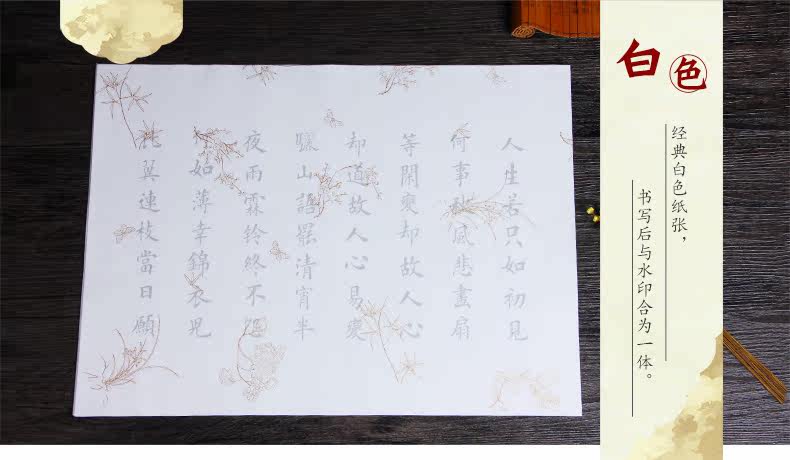 白色
经典白色纸张，
书写后与水印合为一体。
人生若只如初見
何事秋風悲畫扇
等閑變却故人心
却道故人心易變
驪山語罷清宵半
夜雨霖铃終不怨
如薄幸錦衣兒
翼連枝當日願